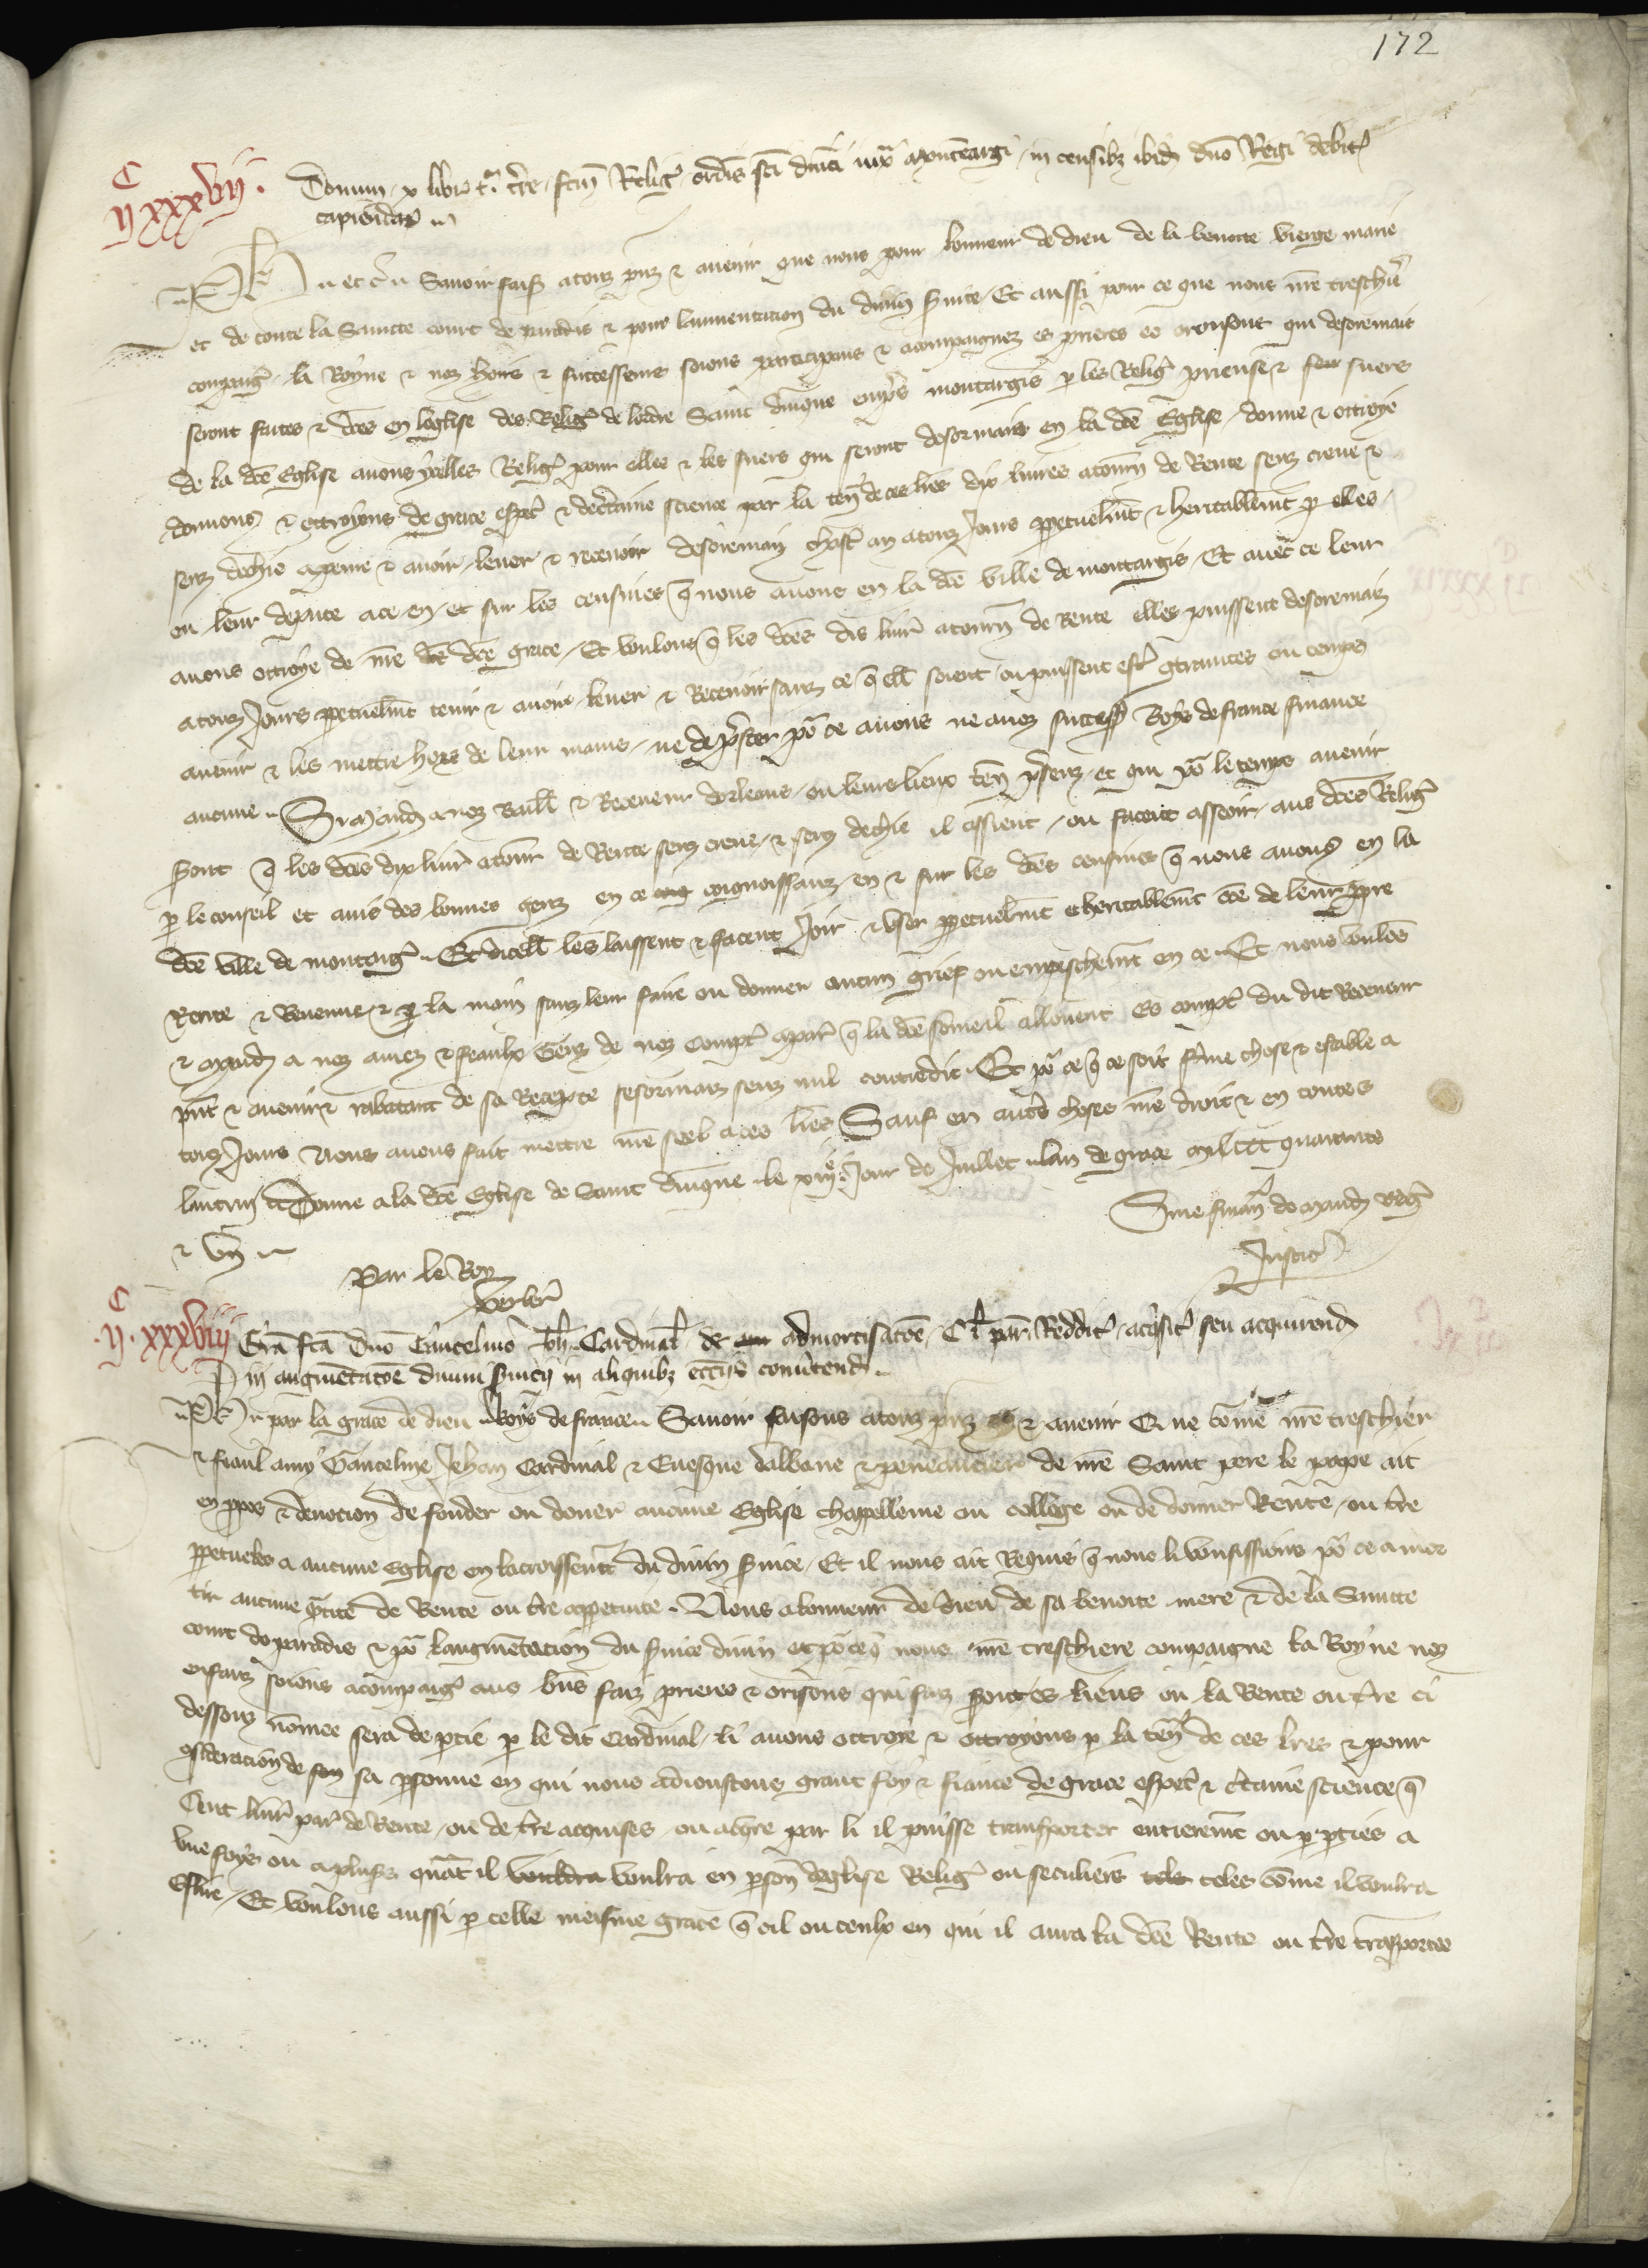 172
C
II XXXVII.
Donum x libr t. terre factum Relig ordinis sci dnici iuxta montemargi in censibz ibid dno Regi debit
capiendar
Ph etc Savoir faisons a touz prnz et avenir que nous pour lonneur de dieu de la benoite vierge marie
et de toute la Saincte court de paradis et pour laumentacion du divin service Et aussi pour ce que nous nre treschiere
compaigne la Royne et noz hoirs et successeurs soions participans et acompaignez es prieres et orousons qui desoremais
seront faites et dites en leglise des Relig de lordre Saint Dmique empres montargis p les Relig prieuse et suers
de la dce Eglise avons ycelles Relig pour elles et les suers qui seront desormais en la dce Eglise donne et ottroye
donnons et ottroyons de grace especl et de certaine science par la ten de ces lres dix livres atourn de Rente senz creue et
senz dechie a penre et avoir lever et recevoir desoremais chascun an a touz Jours ppetuelmt et heritablemt p elles
ou leur depute a ce en et sur les censives q nous avons en la dce ville de montargis Et avec ce leur
avons ottroye de nre dce grace Et voulons q les dces dis livr atourn de Rente elles puissent desoremais
a touz Jours ppetuelmt tenir et avoir lever et Recevoir sanz ce q ell soient ou puissent estre contraintes ou temps
avenir et les mettre hors de leur mains ne de prester por ce a nous ne a noz success Roys de france finance
aucune Si mandons a noz Baill et Receveur dorleans ou leurs lieux ten presenz et qui por le temps avenir
seront q les dces dix livr atourn de Rente senz creue et senz dechie il assient ou facent asseoir aus dces Relig
p le conseil et avis des bonnes genz en ce cognoissanz en et sur les dces censives q nous avons en la
dce ville de montarg Et dicell les laissent et facent Joir et User ppetuelmt et heritablemt cõe de leur ppre
Rente et Revenue et p la main sanz leur faire ou donner aucun grief ou empeschemt en ce Et nous voulons
et mandons a noz amez et feaulx Genz de noz comptes a paris q la dce somme il allouent es comptes du dit Receveur
prnt et avenir et rabatent de sa Recepte sesormais senz nul contredit Et por ce q ce soit ferme chose et estable a
touz Jours Nous avons fait mettre nre seel a ces lres Sauf en autres choses nre droit et en toutes
lautruy Donne a la dce Eglise de Saint Dmique le XIIIIe Jour de Juillet lan de grace mil CCC quarante
et VII
Par le Roy
Verber
Sine finan de mand reg
Justic
C
II. XXXVIII
Gra fca Dno Gaucelmo Joh Cardinal de admortisacoe Cl par Reddit acquisit seu acquirend
in augmentacoe divini servicii in aliquibz eccliis convertend
Ph par la grace de dieu Roys de france Savoir faisons a touz prnz et avenir Que comme nre treschier
et feaul amy Gaucelme Jehan Cardinal et Evesque dalbane et penitancier de nre Saint pere le pape ait
en ppos et devocion de fonder ou doner aucune Eglise chappellenie ou college ou de donner Rente ou terre
ppetueles a aucune Eglise en lacroissemt du divin service Et il nous ait Requis q nous li vousissions por ce amor
tir aucune qtite de Rente ou terre a ppetuite Nous a lonneur de dieu de sa benoite mere et de la Saincte
court de paradis et por laugmentacion du service divin et por ce q nous nre treschiere compaigne la Royne noz
enfanz soions acompaig aus bns faiz prieres et orisons qui faiz seront es lieus ou la Rente ou terre ci
dessouz nommee sera departie p le dit Cardinal li avons ottroye et ottroyons p la ten de ces lres et pour
consideracion de sa psonne en qui nous adioustons grant foy et fiance de grace especl et certaine science q
Cent livr par de Rente ou de terre acquises ou a acqre par li il puisse transporter entieremt ou p pties a
une foys ou a pluss quant il voulra en pson deglise Relig ou seculieres teles comme il voulra
Eslire Et voulons aussi p celle meisme grace q cil ou ceulx en qui il aura la dce Rente ou terre transportee